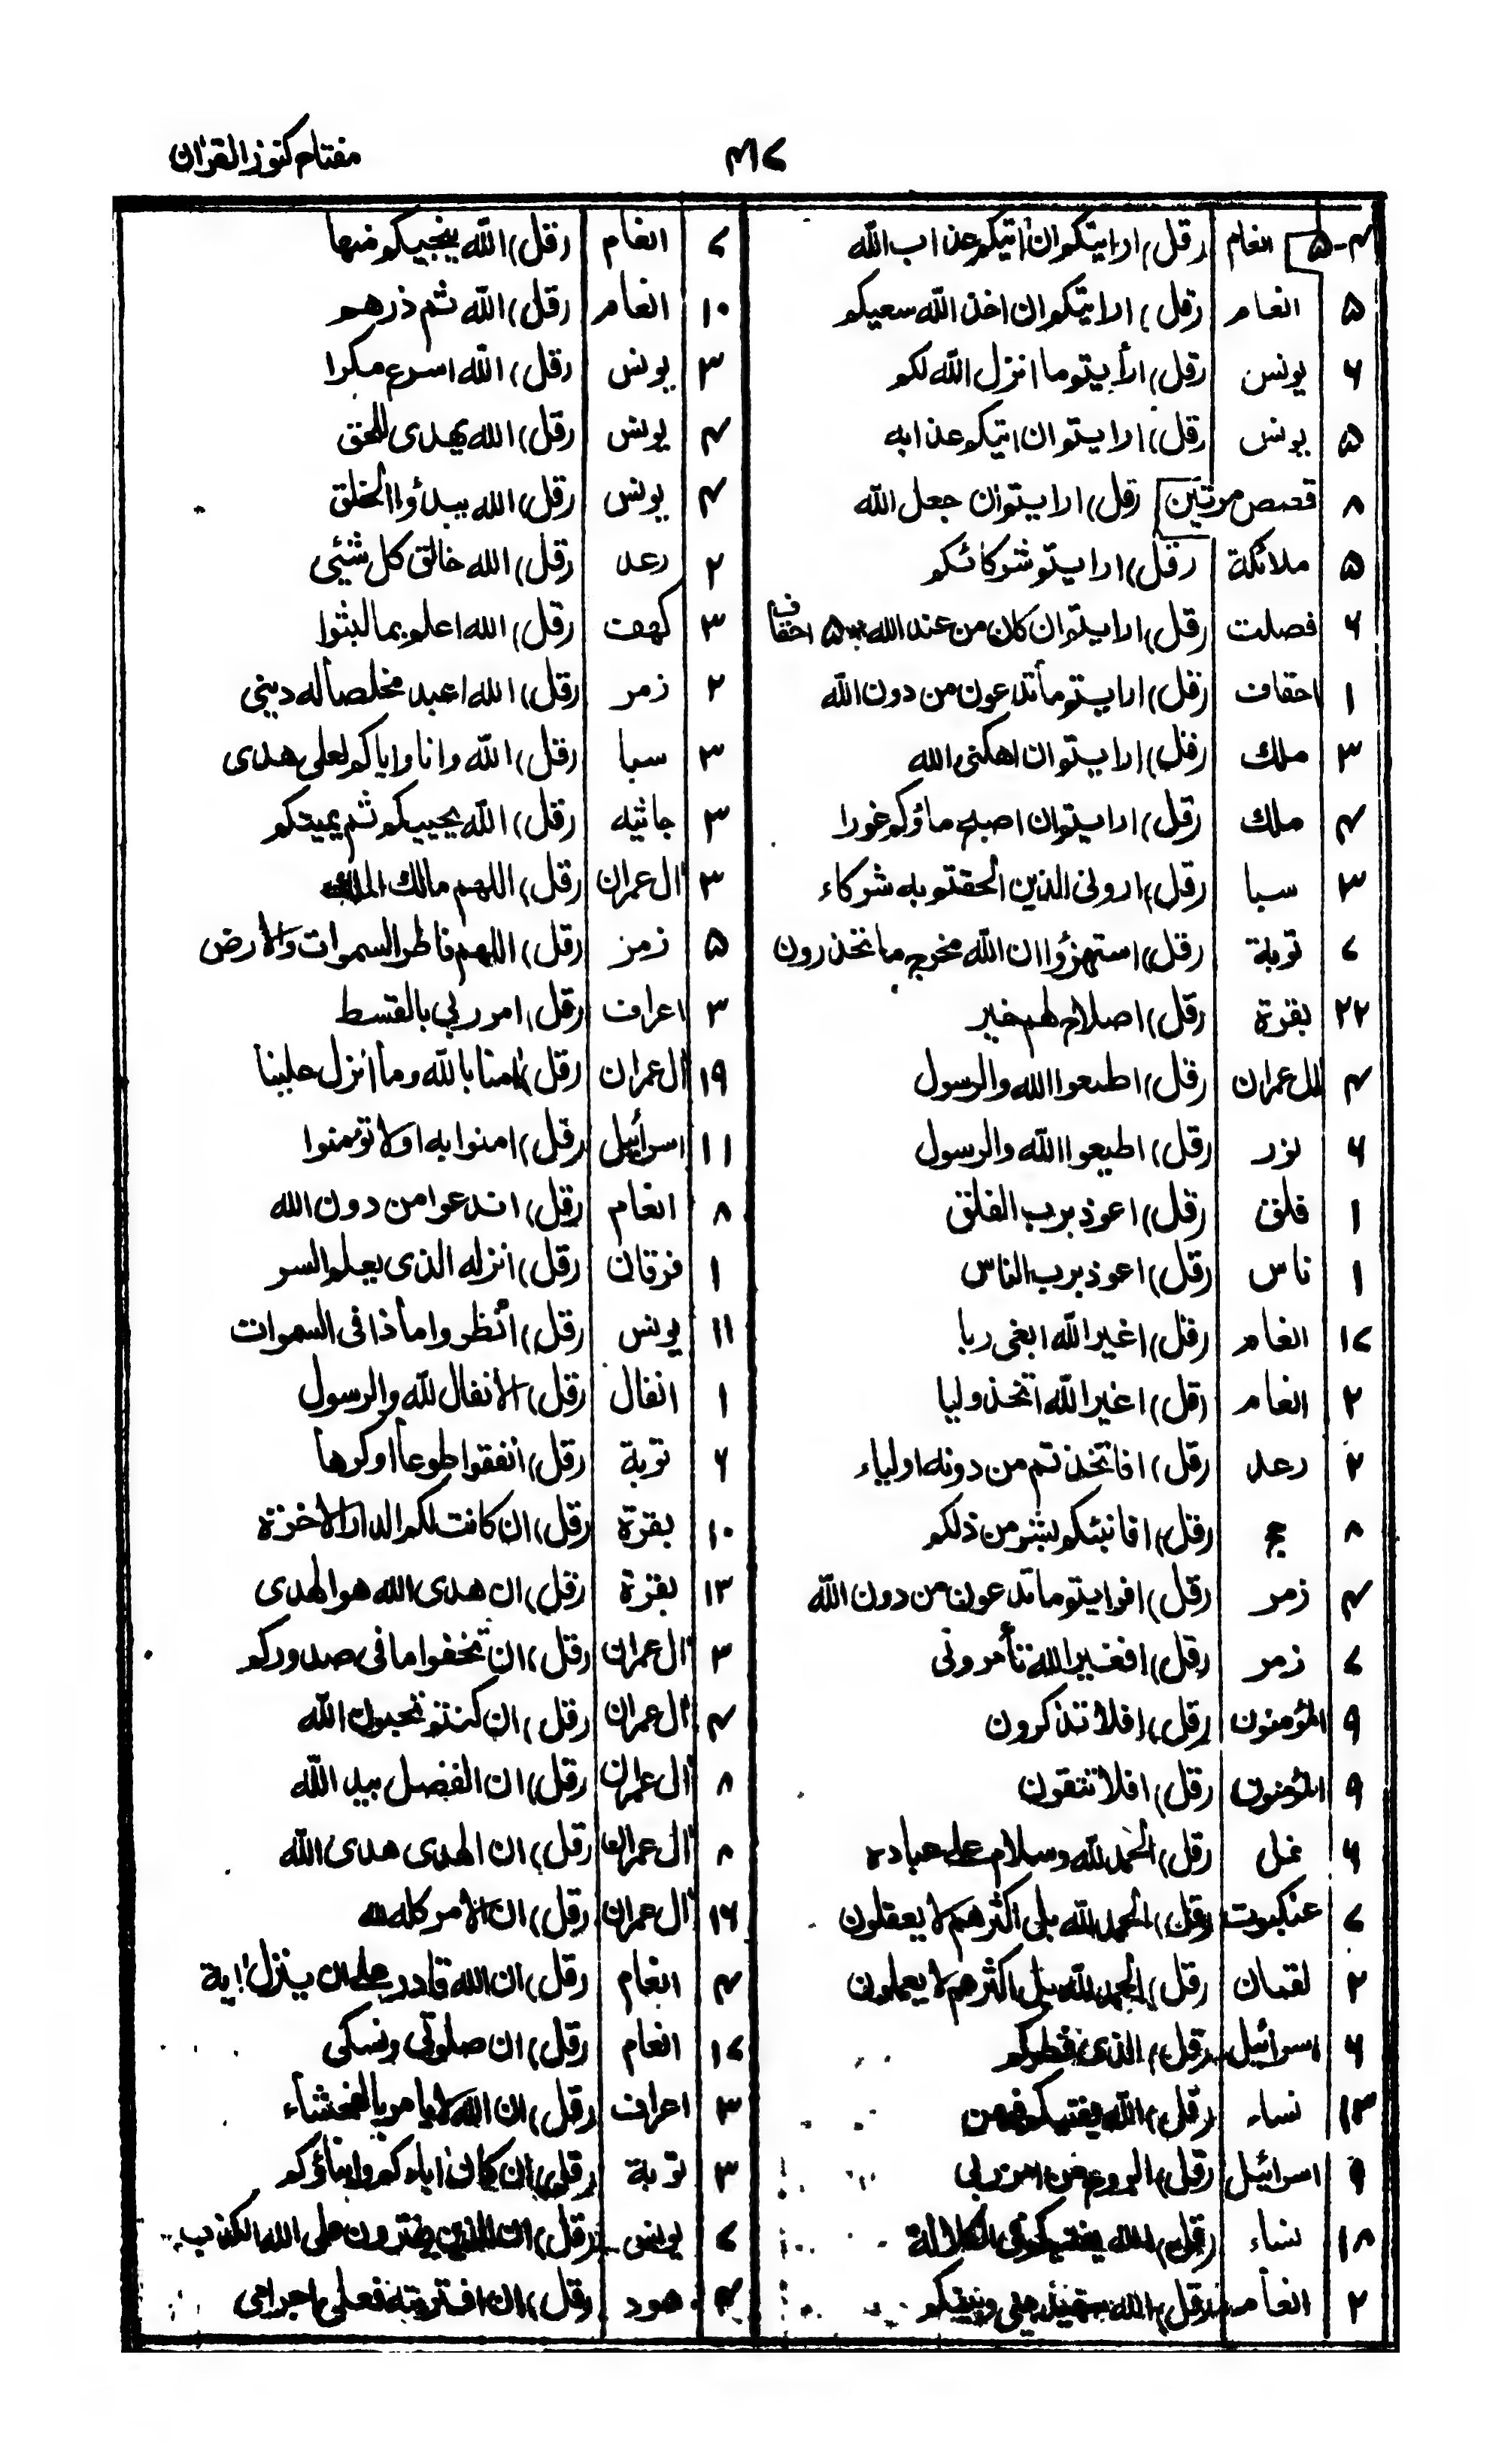 مفتاح کنوز القرآن
۴۱۷
۴-۵ انعام (قل) ارایتکم ان اتیکم عذاب الله
۵ انعام (قل) ارایتکم ان اخذ الله سمعیکم
۶ یونس (قل) ارأیتم ما انزل الله لکم
۵ یونس (قل) ارایتم ان اتیکم عذابه
۸ قصص مرتین (قل) ارایتم ان جعل الله
۵ ملائکة (قل) ارایتم شرکائکم
۶ فصلت (قل) ارایتم ان کان من عند الله ۵ احقاف
۱ احقاف (قل) ارایتم ما تدعون من دون الله
۳ ملك (قل) ارایتم ان اهلکنی الله
۴ ملك (قل) ارایتم ان اصبح ماؤکم غورا
۳ سبا (قل) ارونی الذین الحقتم به شرکاء
۷ توبة (قل) استهزؤا ان الله مخرج ما تحذرون
۲۲ بقرة (قل) اصلاح لهم خیر
۴ ال عمران (قل) اطیعوا الله والرسول
۶ نور (قل) اطیعوا الله والرسول
۱ فلق (قل) اعوذ برب الفلق
۱ ناس (قل) اعوذ برب الناس
۱۷ انعام (قل) اغیر الله ابغی ربا
۲ انعام (قل) اغیر الله اتخذ ولیا
۲ رعد (قل) افاتخذتم من دونه اولیاء
۸ حج (قل) افانبئکم بشر من ذلکم
۴ زمر (قل) افرایتم ما تدعون من دون الله
۷ زمر (قل) افغیر الله تأمرونی
۹ المؤمنون (قل) افلا تذکرون
۹ المؤمنون (قل) افلا تتقون
۶ نمل (قل) الحمد لله وسلام علی عباده
۷ عنکبوت (قل) الحمد لله بلی اکثرهم لا یعقلون
۲ لقمان (قل) الحمد لله بل اکثرهم لا یعملون
۶ اسرائیل (قل) الذی فطرکم
۱۳ نساء (قل) الله یفتیکم فیهن
۹ اسرائیل (قل) الروح من امر ربی
۱۸ نساء (قل) الله یفتیکم فی الکلالة
۲ انعام (قل) الله شهید بینی وبینکم
۷ انعام (قل) الله ینجیکم منها
۱۰ انعام (قل) الله ثم ذرهم
۳ یونس (قل) الله اسرع مکرا
۴ یونس (قل) الله یهدی للحق
۴ یونس (قل) الله یبدؤا الخلق
۲ رعد (قل) الله خالق کل شیئی
۳ کهف (قل) الله اعلم بما لبثوا
۲ زمر (قل) الله اعبد مخلصا له دینی
۳ سبا (قل) الله وانا وایاکم لعلی هدی
۳ جاثیه (قل) الله یحییکم ثم یمیتکم
۳ ال عمران (قل) اللهم مالك الملك
۵ زمر (قل) اللهم فاطر السموات والارض
۳ اعراف (قل) امر ربی بالقسط
۱۹ ال عمران (قل) امنا بالله وما انزل علینا
۱۱ اسرائیل (قل) امنوا به اولا تؤمنوا
۸ انعام (قل) اندعوا من دون الله
۱ فرقان (قل) انزله الذی یعلم السر
۱۱ یونس (قل) انظروا ماذا فی السموات
۱ انفال (قل) الانفال لله والرسول
۶ توبة (قل) انفقوا طوعا او کرها
۱۰ بقرة (قل) ان کانت لکم الدار الاخرة
۱۳ بقرة (قل) ان هدی الله هو الهدی
۳ ال عمران (قل) ان تخفوا ما فی صدورکم
۴ ال عمران (قل) ان کنتم تحبون الله
۸ ال عمران (قل) ان الفضل بید الله
۸ ال عمران (قل) ان الهدی هدی الله
۱۶ ال عمران (قل) ان الامر کله لله
۴ انعام (قل) ان الله قادر علی ان ینزل ایة
۱۷ انعام (قل) ان صلوتی ونسکی
۳ اعراف (قل) ان الله لا یامر بالفحشاء
۳ توبة (قل) ان کان اباؤکم وابناؤکم
۷ یونس (قل) ان الذین یفترون علی الله الکذب
هود (قل) ان افتریته فعلی اجرامی